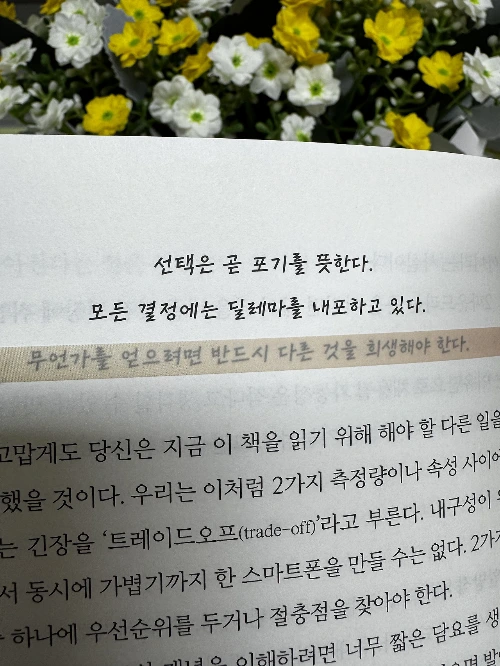 선택은 곧 포기를 뜻한다.
모든 결정에는 딜레마를 내포하고 있다.
무언가를 얻으려면 반드시 다른 것을 희생해야 한다.
고맙게도 당신은 지금 이 책을 읽기 위해 해야 할 다른 일을
했을 것이다. 우리는 이처럼 2가지 측정량이나 속성 사이에
는 긴장을 ‘트레이드오프(trade-off)’라고 부른다. 내구성이
서 동시에 가볍기까지 한 스마트폰을 만들 수는 없다. 2가지
하나에 우선순위를 두거나 절충점을 찾아야 한다.
개념을 이해하려면 너무 짧은 담요를